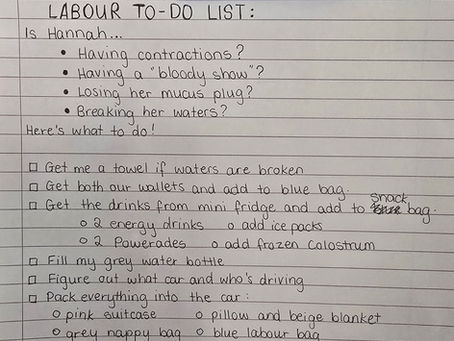 LABOUR TO-DO LIST:
Is Hannah...
• Having contractions?
• Having a "bloody show"?
• Losing her mucus plug?
• Breaking her waters?
Here's what to do!
□ Get me a towel if waters are broken
□ Get both our wallets and add to blue bag.
□ Get the drinks from mini fridge and add to snack bag.
○ 2 energy drinks ○ add ice packs
○ 2 Powerades ○ add frozen colostrum
□ Fill my grey water bottle
□ Figure out what car and who's driving
□ Pack everything into the car:
○ pink suitcase ○ pillow and beige blanket
○ grey nappy bag ○ blue labour bag